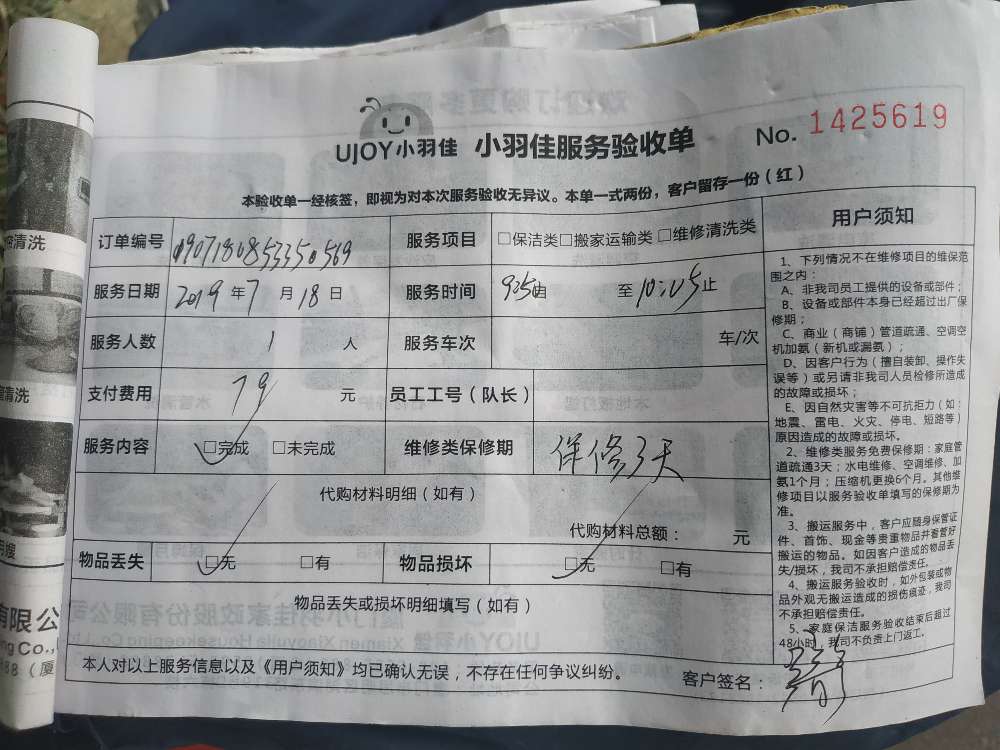 UJOY小羽佳 小羽佳服务验收单 No. 1425619
本验收单一经核签，即视为对本次服务验收无异议。本单一式两份，客户留存一份（红）
订单编号 服务项目 □保洁类□搬家运输类□维修清洗类
服务日期 2019 年 7 月 18 日 服务时间 至 10:05 止
服务人数 1 人 服务车次 车/次
支付费用 79 元 员工工号（队长）
服务内容 □完成 □未完成 维修类保修期 保修3天
代购材料明细（如有）
代购材料总额： 元
物品丢失 □无 □有 物品损坏 □无 □有
物品丢失或损坏明细填写（如有）
本人对以上服务信息以及《用户须知》均已确认无误，不存在任何争议纠纷。 客户签名：
用户须知
1、下列情况不在维修项目的维保范
围之内：
A、非我司员工提供的设备或部件；
B、设备或部件本身已经超过出厂保
修期；
C、商业（商铺）管道疏通、空调空
机加氨（新机或漏氨）；
D、因客户行为（擅自装卸、操作失
误等）或另请非我司人员检修所造成
的故障或损坏；
E、因自然灾害等不可抗拒力（如：
地震、雷电、火灾、停电、短路等）
原因造成的故障或损坏。
2、维修类服务免费保修期：家庭管
道疏通3天；水电维修、空调维修、加
氨1个月；压缩机更换6个月。其他维
修项目以服务验收单填写的保修期为
准。
3、搬运服务中，客户应随身保管证
件、首饰、现金等贵重物品并看管好
搬运的物品。如因客户造成的物品丢
失/损坏，我司不承担赔偿责任。
4、搬运服务验收时，如外包装或物
品外观无搬运造成的损伤痕迹，我司
不承担赔偿责任。
5、家庭保洁服务验收结束后超过
48小时，我司不负责上门返工。
清洗
清洗
有限公